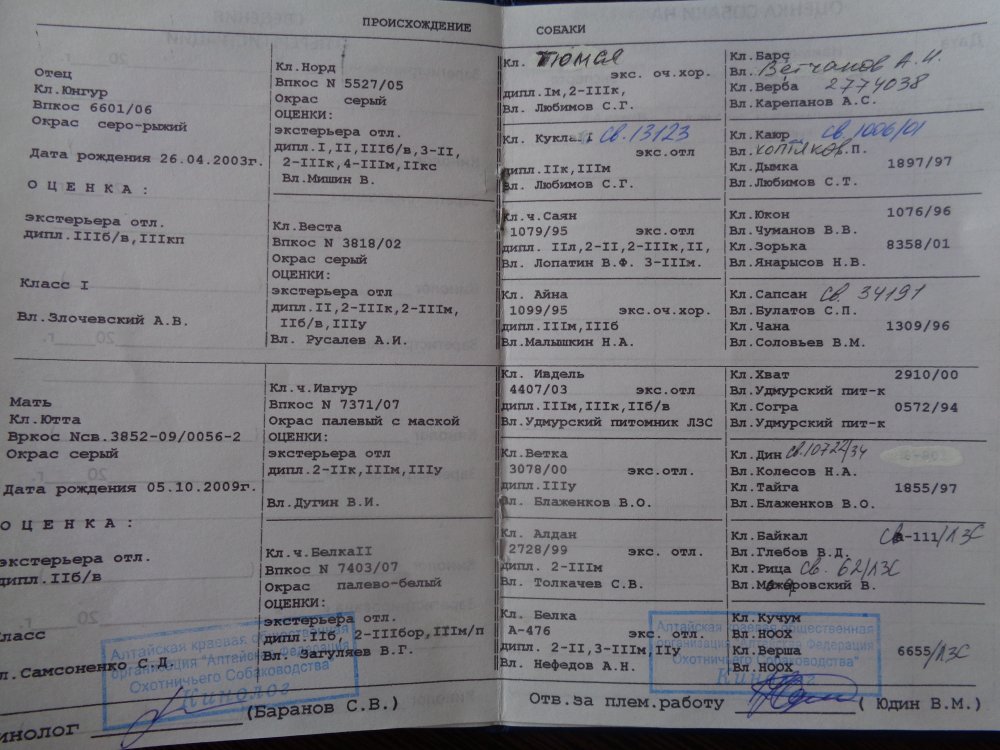 ПРОИСХОЖДЕНИЕ
Отец
Кл.Юнгур
Впкос 6601/06
Окрас серо-рыжий
Дата рождения 26.04.2003г.
О Ц Е Н К А :
экстерьера отл.
дипл.IIIб/в,IIIкп
Класс I
Вл.Злочевский А.В.
Мать
Кл.Ютта
Вркос Nсв.3852-09/0056-2
Окрас серый
Дата рождения 05.10.2009г.
О Ц Е Н К А :
экстерьера отл.
дипл.IIб/в
Класс
Вл.Самсоненко С.Д.
Кл.Норд
Впкос N 5527/05
Окрас серый
ОЦЕНКИ:
экстерьера отл.
дипл.I,II,IIIб/в,3-II,
2-IIIк,4-IIIм,IIкс
Вл.Мишин В.
Кл.Веста
Впкос N 3818/02
Окрас серый
ОЦЕНКИ:
экстерьера отл
дипл.II,2-IIIк,2-IIIм,
IIб/в,IIIу
Вл. Русалев А.И.
Кл.ч.Ивгур
Впкос N 7371/07
Окрас палевый с маской
ОЦЕНКИ:
экстерьера отл
дипл.2-IIк,IIIм,IIIу
Вл.Дугин В.И.
Кл.ч.БелкаII
Впкос N 7403/07
Окрас палево-белый
ОЦЕНКИ:
экстерьера отл.
дипл.IIб, 2-IIIбор,IIIм/п
Вл. Загуляев В.Г.
Алтайская краевая общественная
организация "Алтайская федерация
Охотничьего Собаководства"
Кинолог
инолог (Баранов С.В.)
СОБАКИ
Кл. Томал
экс. оч.хор.
дипл.Iм,2-IIIк,
Вл. Любимов С.Г.
Кл. Кукла I св.13123
экс.отл
дипл.IIк,IIIм
Вл. Любимов С.Г.
Кл.ч.Саян
1079/95 экс.отл
дипл. IIл,2-II,2-IIIк,II,
Вл. Лопатин В.Ф. 3-IIIм.
Кл. Айна
1099/95 экс.оч.хор.
дипл.IIIм,IIIб
Вл.Малышкин Н.А.
Кл. Ивдель
4407/03 экс.отл
дипл.IIIм,IIIк,IIб/в
Вл.Удмурский питомник ЛЗС
Кл.Ветка
3078/00 экс.отл.
дипл.IIIу
Вл. Блаженков В.О.
Кл. Алдан
2728/99 экс. отл.
дипл. 2-IIIм
Вл. Толкачев С.В.
Кл. Белка
А-476 экс. отл.
дипл. 2-II,3-IIIм,IIу
Вл. Нефедов А.Н.
Кл.Барс
Вл. Ветчанов А.И.
Кл.Верба 2774038
Вл.Карепанов А.С.
Кл.Каюр св.1006/01
Вл.Котляков.П.
Кл.Дымка 1897/97
Вл.Любимов С.Т.
Кл.Юкон 1076/96
Вл.Чуманов В.В.
Кл.Зорька 8358/01
Вл.Янарысов Н.В.
Кл.Сапсан св. 34191
Вл.Булатов С.П.
Кл.Чана 1309/96
Вл.Соловьев В.М.
Кл.Хват 2910/00
Вл.Удмурский пит-к
Кл.Согра 0572/94
Вл.Удмурский пит-к
Кл.Дин св.10722/34
Вл.Колесов Н.А.
Кл.Тайга 1855/97
Вл.Блаженков В.О.
Кл.Байкал св а-111/ЛЗС
Вл.Глебов В.Д.
Кл.Рица св. 62/ЛЗС
Вл.Можаровский В.
Кл.Кучум
Вл.НООХ
Кл.Верша 6655/ЛЗС
Вл.НООХ
Алтайская краевая общественная
организация "Алтайская федерация
Охотничьего Собаководства"
Кинолог
Отв.за плем.работу ( Юдин В.М.)